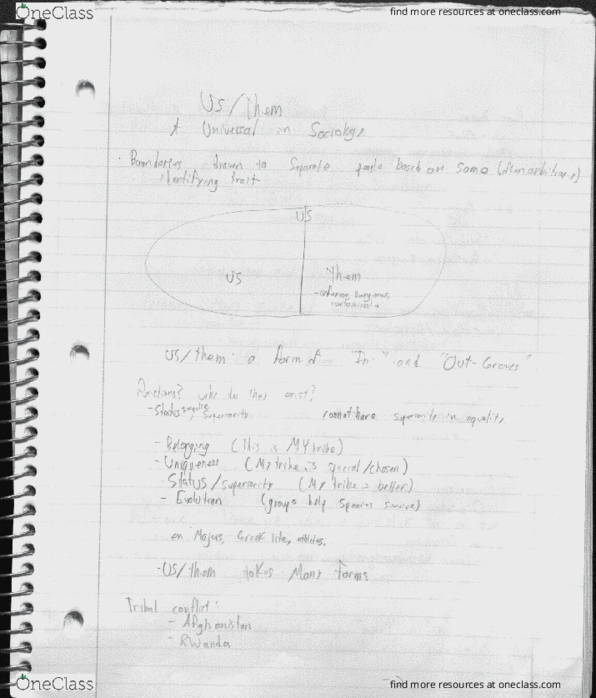 OneClass
find more resources at oneclass.com
US/Them
A Universal in Sociology
- Boundaries drawn to Separate people based on some (often arbitrary)
identifying trait
US
US
Them
- inferior, dangerous,
US/them: a form of "In-" and "Out-Groups"
Functions? why do they exist?
- Status superiority cannot have superiority in equality
- Belonging (This is MY tribe)
- Uniqueness (My tribe is special/chosen)
Status/superiority (My tribe is better)
- Evolution (groups help species survive)
ex. Majors, Greek life, athletes.
- US/them takes Many forms
Tribal conflict:
- Afghanistan
- Rwanda
OneClass
find more resources at oneclass.com